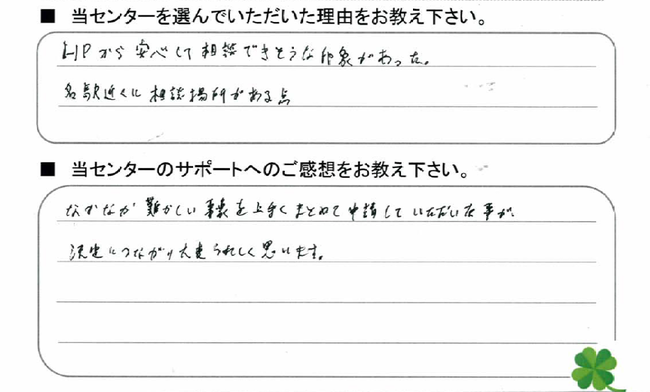 ■ 当センターを選んでいただいた理由をお教え下さい。
HPから安心して相談できそうな印象があった。
名駅近くに相談場所がある点
■ 当センターのサポートへのご感想をお教え下さい。
なかなか難かしい事案を上手くまとめて申請していただいた事が、
決定につながり大変うれしく思います。